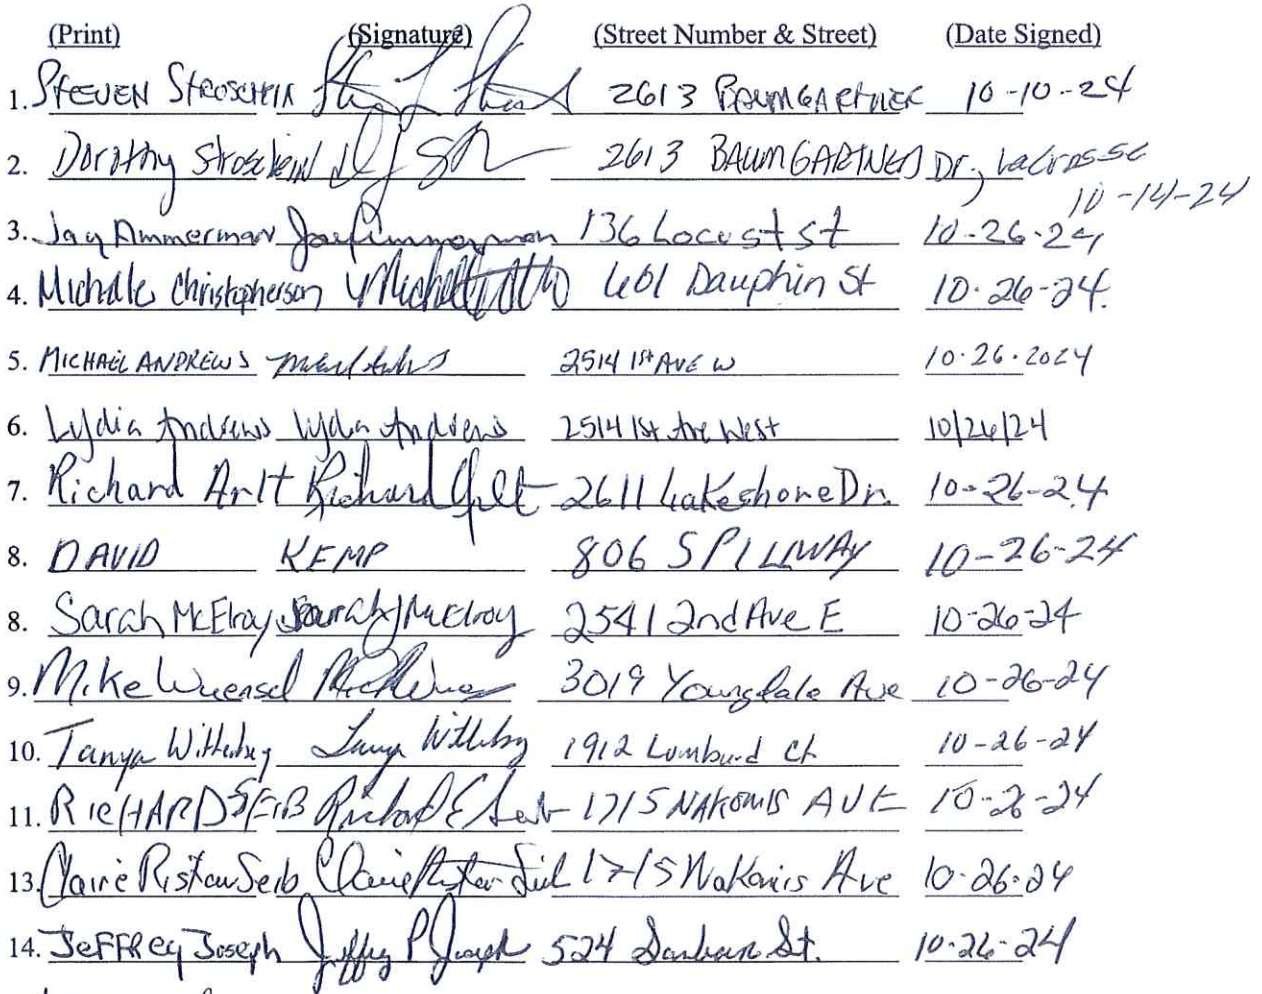 (Print) (Signature) (Street Number & Street) (Date Signed)
1. STEVEN STROSCHEIN 2613 BAUMGARTNER 10-10-24
2. Dorothy Stroschein 2613 BAUMGARTNER Dr., LaCrosse
10-14-24
3. Jay Ammerman Jay Ammerman 136 Locust st 10-26-24
4. Michelle Christopherson 601 Dauphin St 10-26-24.
5. MICHAEL ANDREWS 2514 1st AVE W 10.26.2024
6. Lydia Andrews Lydia Andrews 2514 1st Ave West 10/26/24
7. Richard Arlt Richard Arlt 2611 Lakeshore Dr. 10-26-24
8. DAVID KEMP 806 SPILLWAY 10-26-24
8. Sarah McElroy Sarah J McElroy 2541 2nd Ave E 10-26-24
9. Mike Wuensel 3019 Youngdale Ave 10-26-24
10. Tanya 1912 Lombard Ct 10-26-24
11. RICHARD SEIB Richard E Seib 1715 NAKOMIS AVE 10-26-24
13. Claire Ristow Seib Claire Ristow Seib 1715 Nakomis Ave 10-26-24
14. JEFFREY Joseph Jeffrey P Joseph 524 St. 10-26-24